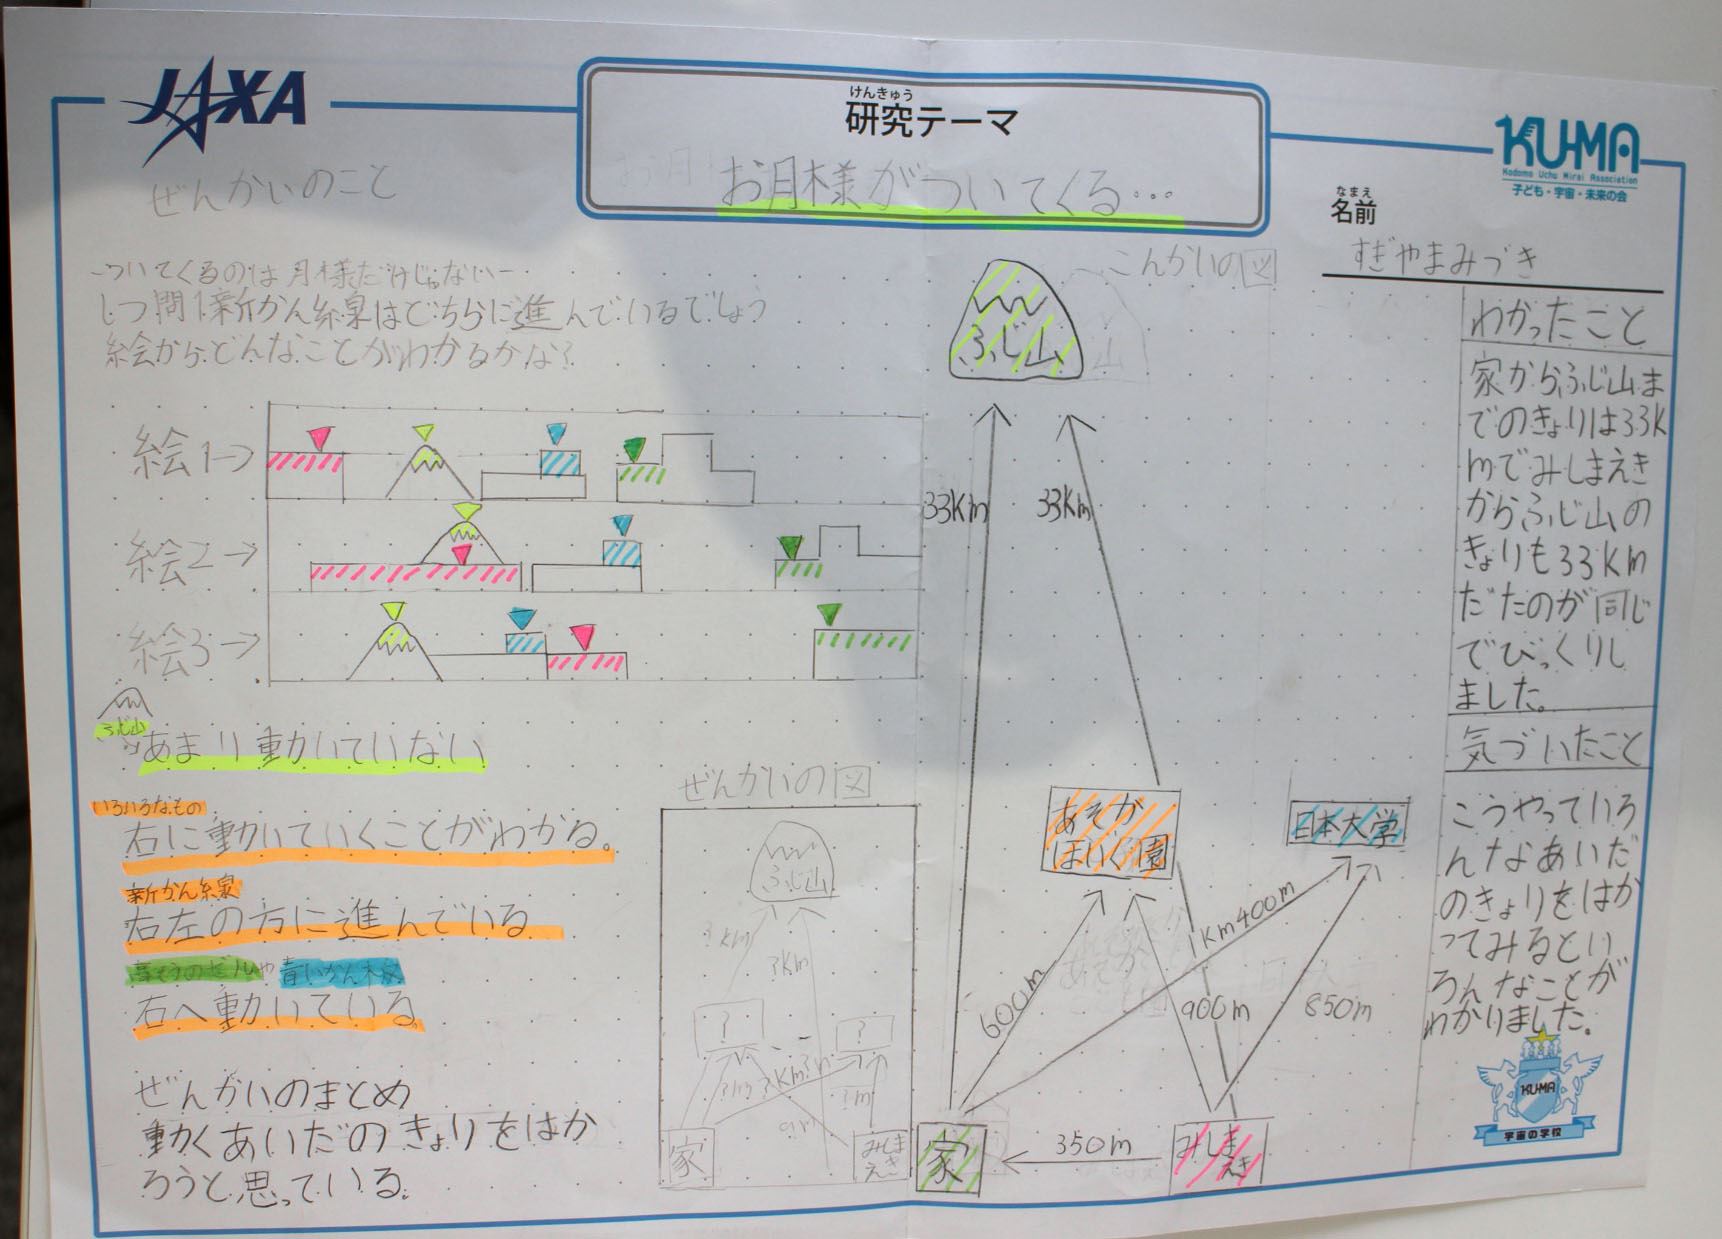 JAXA
けんきゅう
研究テーマ
お月様がついてくる…
KU-MA
Kodomo Uchu Mirai Association
子ども・宇宙・未来の会
なまえ
名前
すぎやまみづき
ぜんかいのこと
-ついてくるのは月様だけじゃない-
しつ問1新かん線はどちらに進んでいるでしょう
絵からどんなことがわかるかな?
絵1→
絵2→
絵3→
ふじ山
あまり動いていない
いろいろなもの
右に動いていくことがわかる。
新かん線
右左の方に進んでいる
のビルや青いかん板
右へ動いている。
ぜんかいのまとめ
動くあいだのきょりをはか
ろうと思っている。
ぜんかいの図
ふじ山
?km
?km
?
?
?m
?km
?m
?m
家
みしま
えき
こんかいの図
ふじ山
33km
33km
あそか
ほいく園
日本大学
600m
1km400m
900m
850m
家
350m
みしま
えき
わかったこと
家からふじ山ま
でのきょりは33k
mでみしまえき
からふじ山の
きょりも33km
だたのが同じ
でびっくりし
ました。
気づいたこと
こうやっていろ
んなあいだ
のきょりをはか
ってみるとい
ろんなことが
わかりました。
KU-MA
宇宙の学校